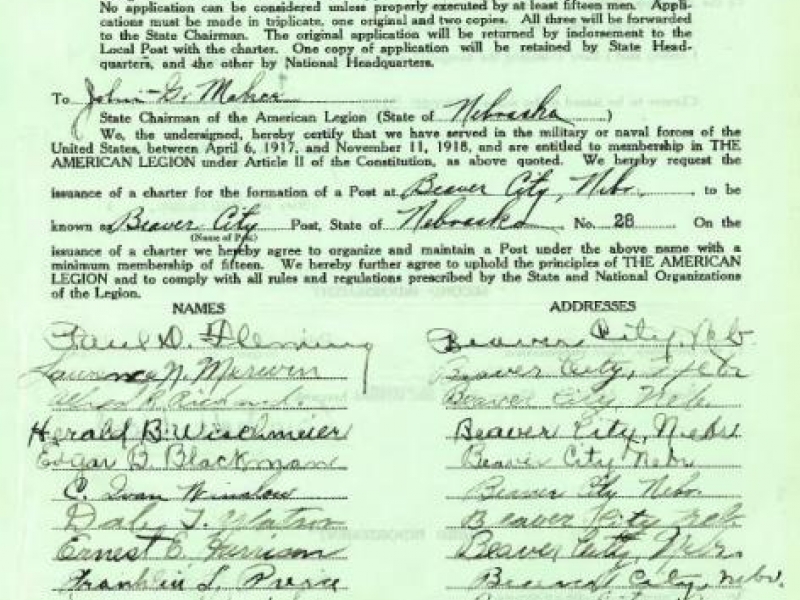 No application can be considered unless properly executed by at least fifteen men. Appli-
cations must be made in triplicate, one original and two copies. All three will be forwarded
to the State Chairman. The original application will be returned by indorsement to the
Local Post with the charter. One copy of application will be retained by State Head-
quarters, and the other by National Headquarters.
To John G. Maher
State Chairman of the American Legion (State of Nebraska)
We, the undersigned, hereby certify that we have served in the military or naval forces of the
United States, between April 6, 1917, and November 11, 1918, and are entitled to membership in THE
AMERICAN LEGION under Article II of the Constitution, as above quoted. We hereby request the
issuance of a charter for the formation of a Post at Beaver City, Nebr. to be
known as Beaver City Post, State of Nebraska No. 28 On the
(Name of Post)
issuance of a charter we hereby agree to organize and maintain a Post under the above name with a
minimum membership of fifteen. We hereby further agree to uphold the principles of THE AMERICAN
LEGION and to comply with all rules and regulations prescribed by the State and National Organizations
of the Legion.
NAMES ADDRESSES
Paul D. Fleming Beaver City, Neb
Lawrence N. Merwin Beaver City, Nebr
Beaver City Neb.
Herald B. Wischmeier Beaver City, Nebr
Edgar B. Blackman Beaver City Nebr
C. Ivan Winslow Beaver City Nebr.
Dale T. Beaver City Neb.
Ernest E. Harrison Beaver City, Nebr.
Franklin L. Pierce Beaver City, Nebr.